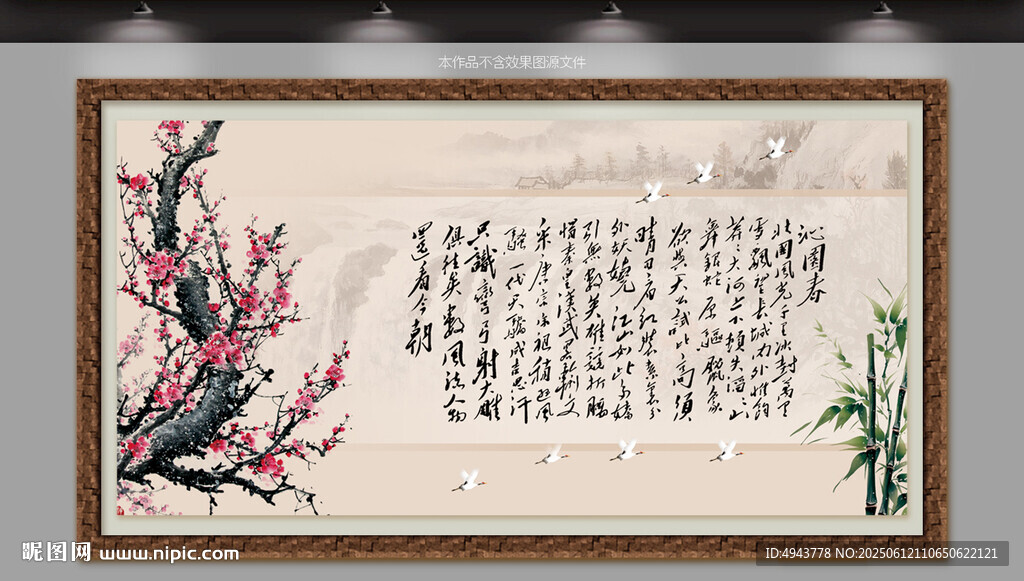 本作品不含效果图源文件
沁園春
北國風光千里冰封萬里
雪飄望長城內外惟餘
莽莽大河上下頓失滔滔山
舞銀蛇原驅臘象
欲與天公試比高須
晴日看紅裝素裹分
外妖嬈江山如此多嬌
引無數英雄競折腰
惜秦皇漢武略輸文
采唐宗宋祖稍遜風
騷一代天驕成吉思汗
只識彎弓射大雕
俱往矣數風流人物
還看今朝
昵图网 www.nipic.com
ID:4943778 NO:20250612110650622121